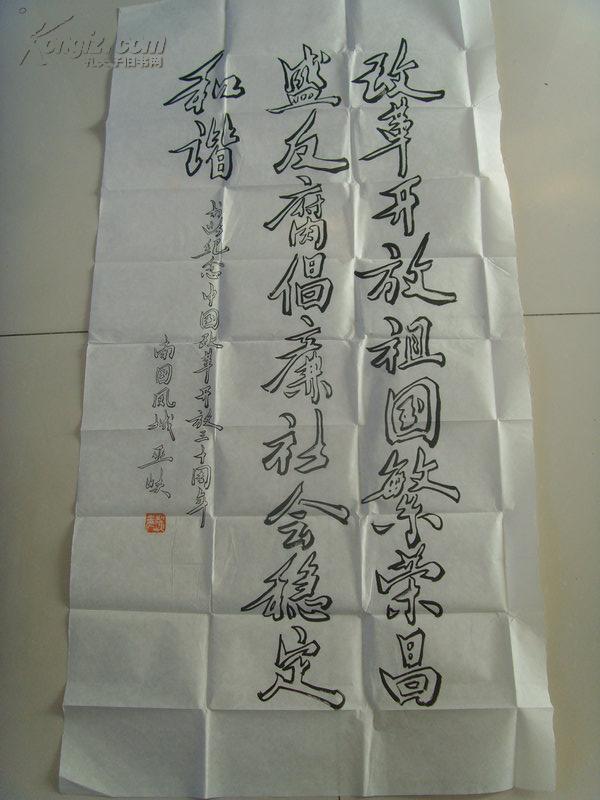 改革开放祖国繁荣昌
盛反腐倡廉社会稳定
和谐
纪念中国改革开放三十周年
南国凤城
Kongfz.com
孔夫子旧书网